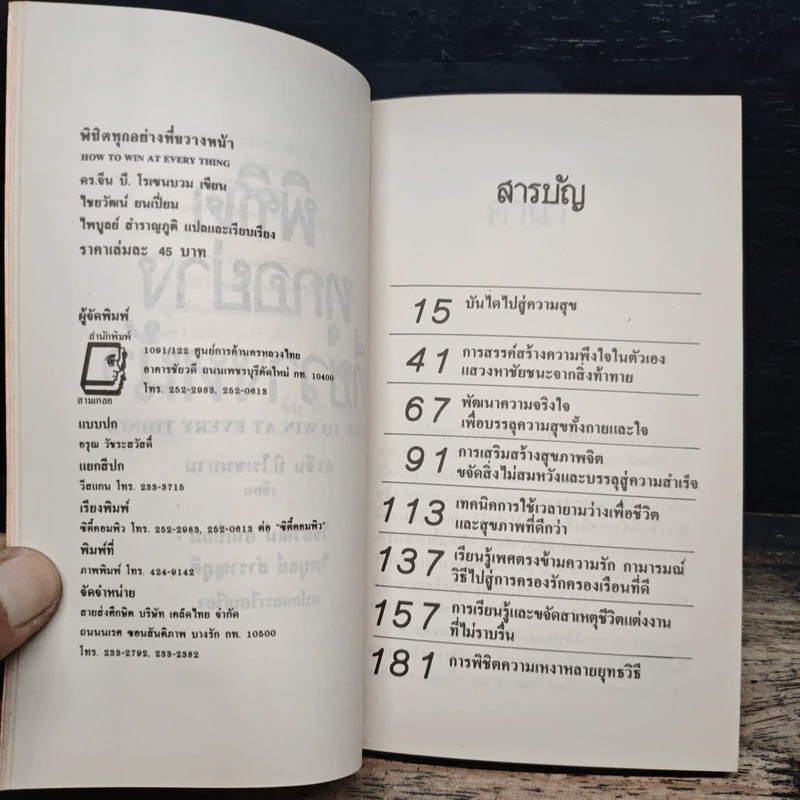 พิชิตทุกอย่างที่ขวางหน้า
HOW TO WIN AT EVERY THING
ดร.จีน บี. โรเซนบวม เขียน
ไชยวัฒน์ ยนเปี่ยม
ไพบูลย์ สำราญภูติ แปลและเรียบเรียง
ราคาเล่มละ 45 บาท
ผู้จัดพิมพ์
สำนักพิมพ์
สามเกลอ
1091/122 ศูนย์การค้านครหลวงไทย
อาคารชัยวดี ถนนเพชรบุรีตัดใหม่ กท. 10400
โทร. 252-2983, 252-0613
แบบปก
อรุณ วัชระสวัสดิ์
แยกสีปก
วีสแกน โทร. 233-3715
เรียงพิมพ์
ซิตี้คอมพิว โทร. 252-2983, 252-0613 ต่อ "ซิตี้คอมพิว"
พิมพ์ที่
ภาพพิมพ์ โทร. 424-9142
จัดจำหน่าย
สายส่งศึกษิต บริษัท เคล็ดไทย จำกัด
ถนนนเรศ ซอนสันติภาพ บางรัก กท. 10500
โทร. 233-2792, 233-2382
สารบัญ
15 บันไดไปสู่ความสุข
41 การสรรค์สร้างความพึงใจในตัวเอง
แสวงหาชัยชนะจากสิ่งท้าทาย
67 พัฒนาความจริงใจ
เพื่อบรรลุความสุขทั้งกายและใจ
91 การเสริมสร้างสุขภาพจิต
ขจัดสิ่งไม่สมหวังและบรรลุสู่ความสำเร็จ
113 เทคนิคการใช้เวลายามว่างเพื่อชีวิต
และสุขภาพที่ดีกว่า
137 เรียนรู้เพศตรงข้ามความรัก กามารมณ์
วิธีไปสู่การครองรักครองเรือนที่ดี
157 การเรียนรู้และขจัดสาเหตุชีวิตแต่งงาน
ที่ไม่ราบรื่น
181 การพิชิตความเหงาหลายยุทธวิธี